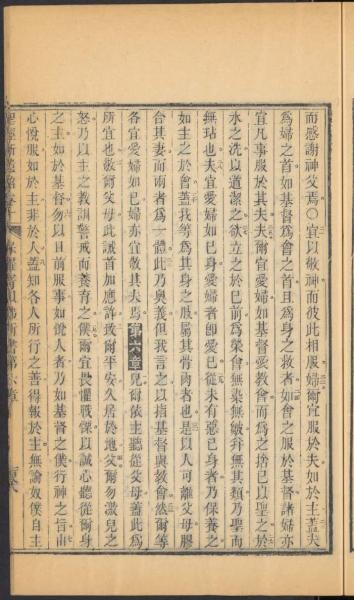 而感謝神父焉○宜以敬神而彼此相服婦爾宜服於夫如於主蓋夫
為婦之首如基督為會之首且為身之救者如會之服於基督諸婦亦
宜凡事服於其夫夫爾宜愛婦如基督愛教會而為之捨己以聖之於
水之洗以道潔之欲立之於己前為榮會無染無皺并無其類乃聖而
無玷也夫宜愛婦如己身愛婦者即愛己從未有惡己身者乃保養之
如主之於會蓋我等為其身之肢屬其骨肉者也是以人可離父母膠
合其妻而兩者為一體此乃奧義但我言之以指基督與教會然爾等
各宜愛婦如己婦亦宜敬其夫焉第六章兒爾依主聽從父母蓋此為
所宜也敬爾父母此誡首加應許致爾平安久居於地父爾勿激兒之
怒乃以主之教訓警戒而養育之僕爾宜畏懼戰慄以誠心聽從爾身
之主如於基督勿以目前服事如悅人者乃如基督之僕行神之旨由
心悅服如於主非於人蓋知各人所行之善得報於主無論奴僕自主